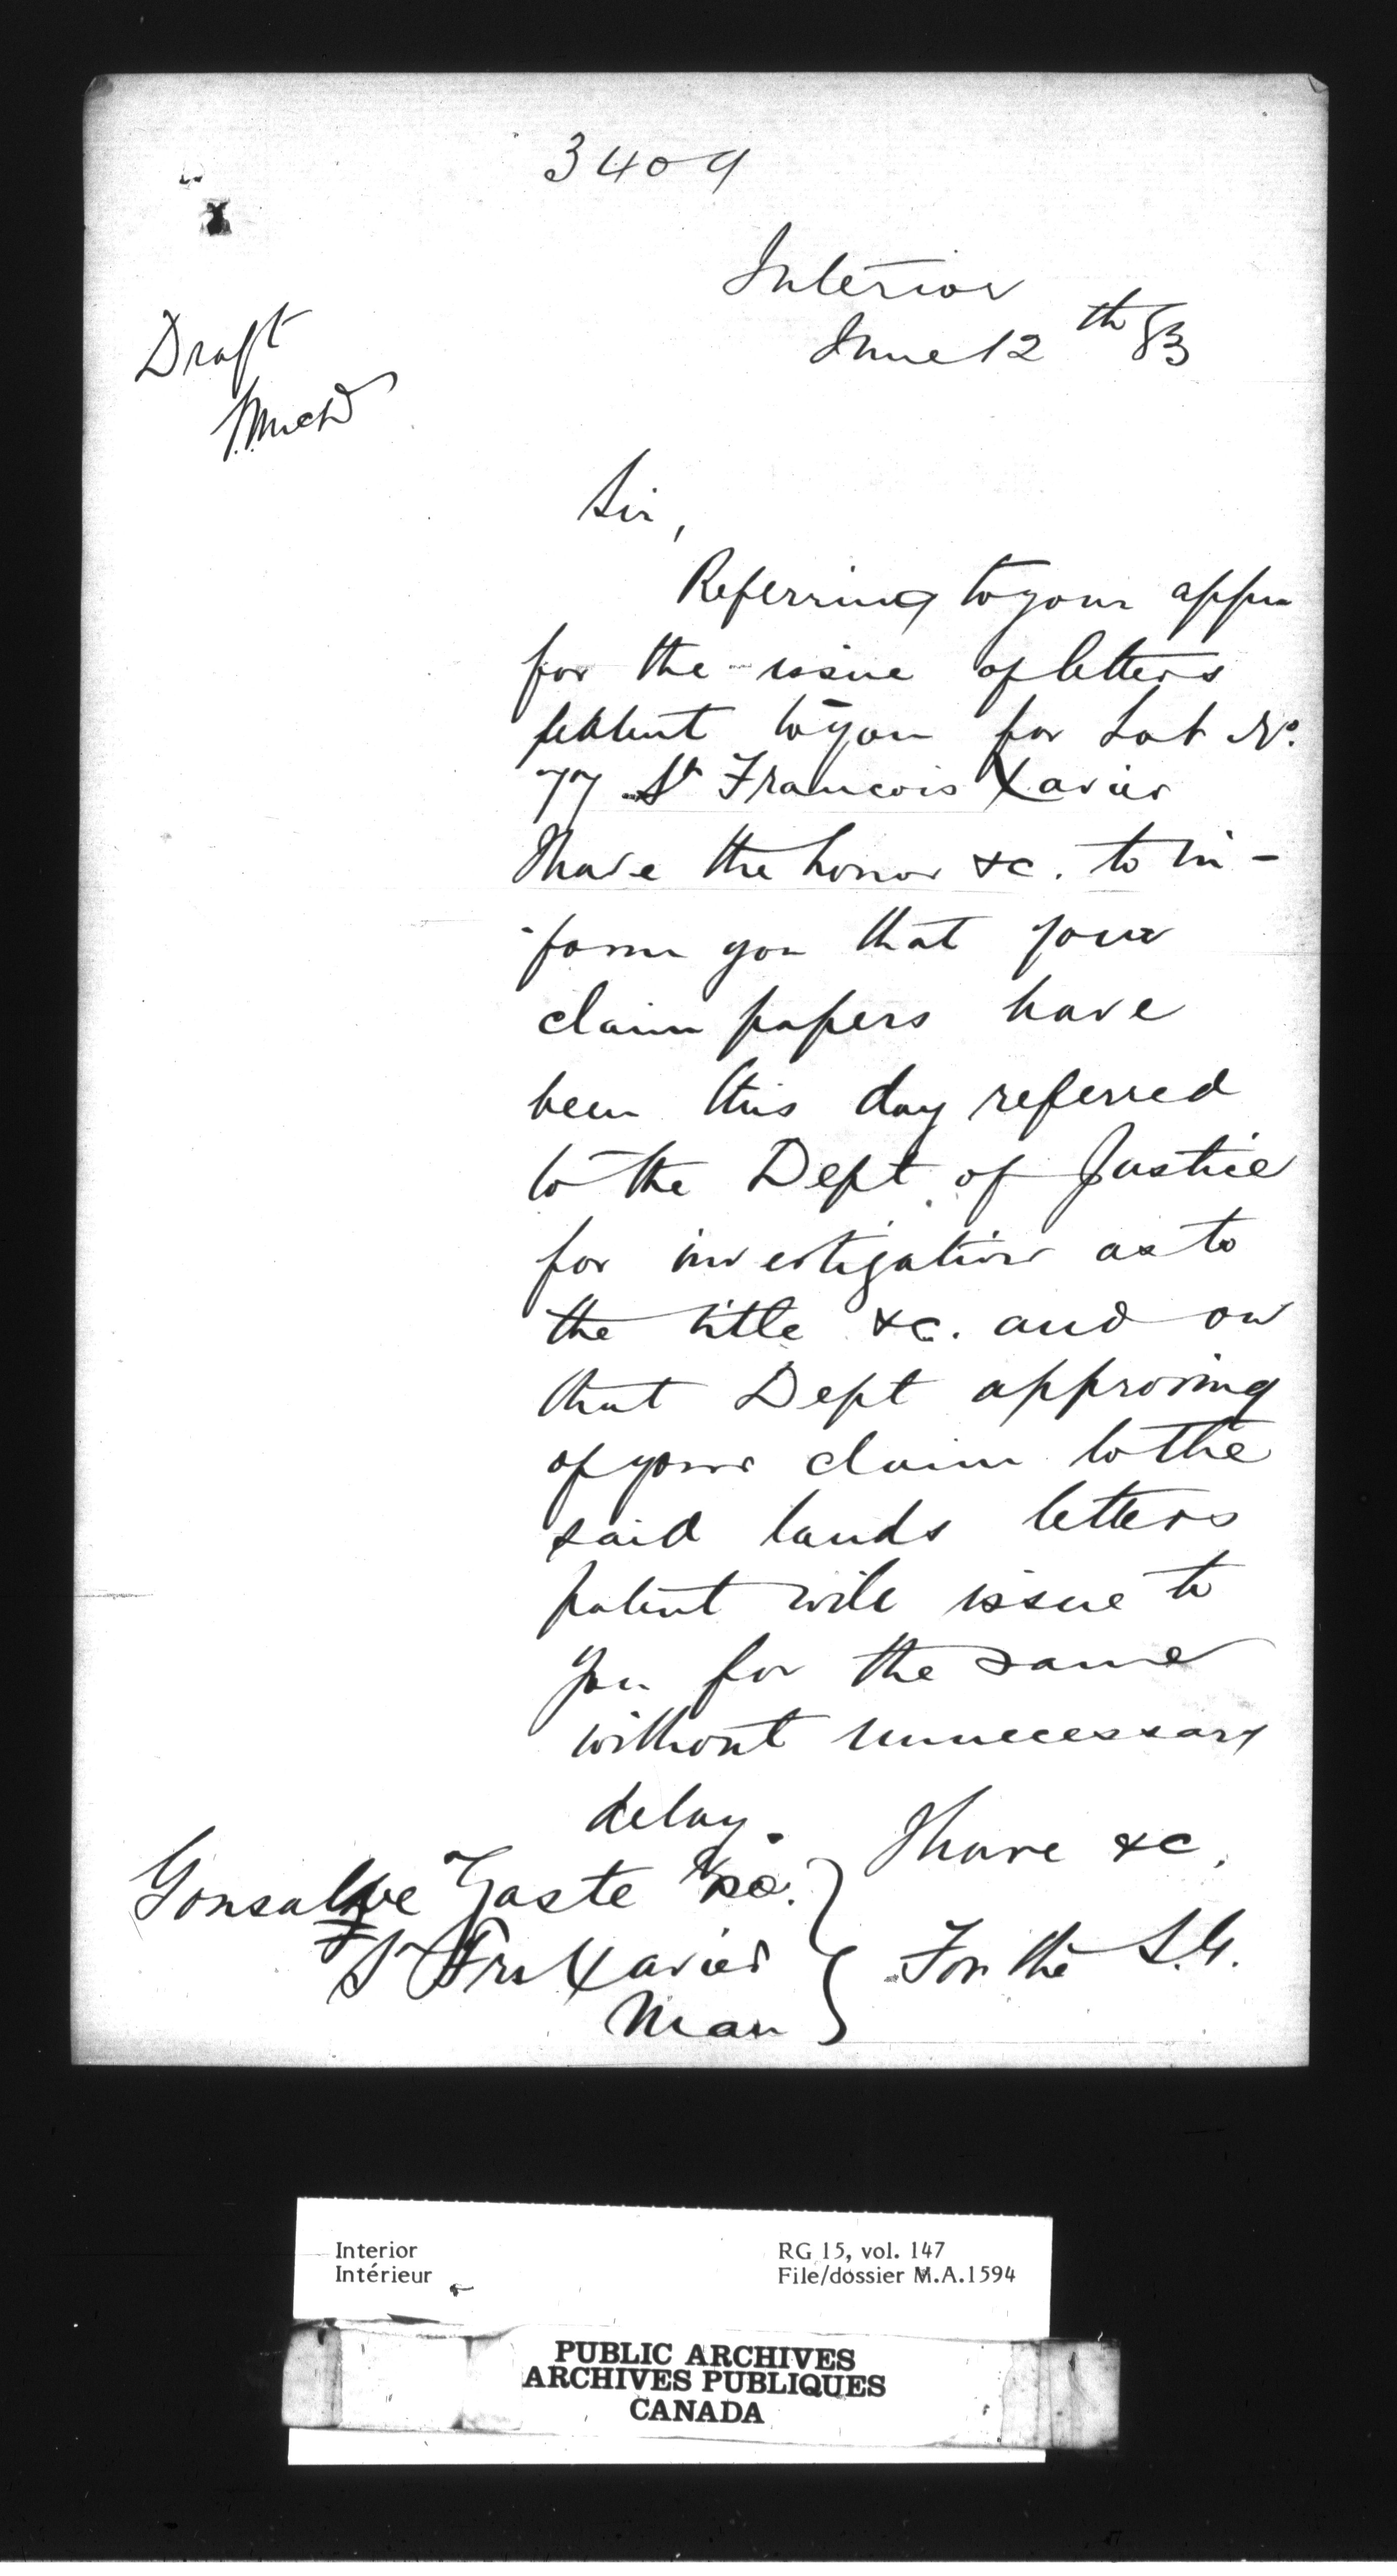 3409
Interior
June 12th 83
Draft
Sir,
Referring to your appn
for the issue of letters
patent to you for Lot No.
77 St Francois Xavier
I have the honor &c. to in-
-form you that your
claim papers have
been this day referred
to the Dept. of Justice
for investigation as to
the title &c. and on
that Dept approving
of your claim to the
said lands letters
patent will issue to
you for the same
without unnecessary
delay.
I have &c.
Gonsalve Gaste Esq.
St Frs Xavier
Man
For the S.G.
Interior
Intérieur
RG 15, vol. 147
File/dossier M.A.1594
PUBLIC ARCHIVES
ARCHIVES PUBLIQUES
CANADA